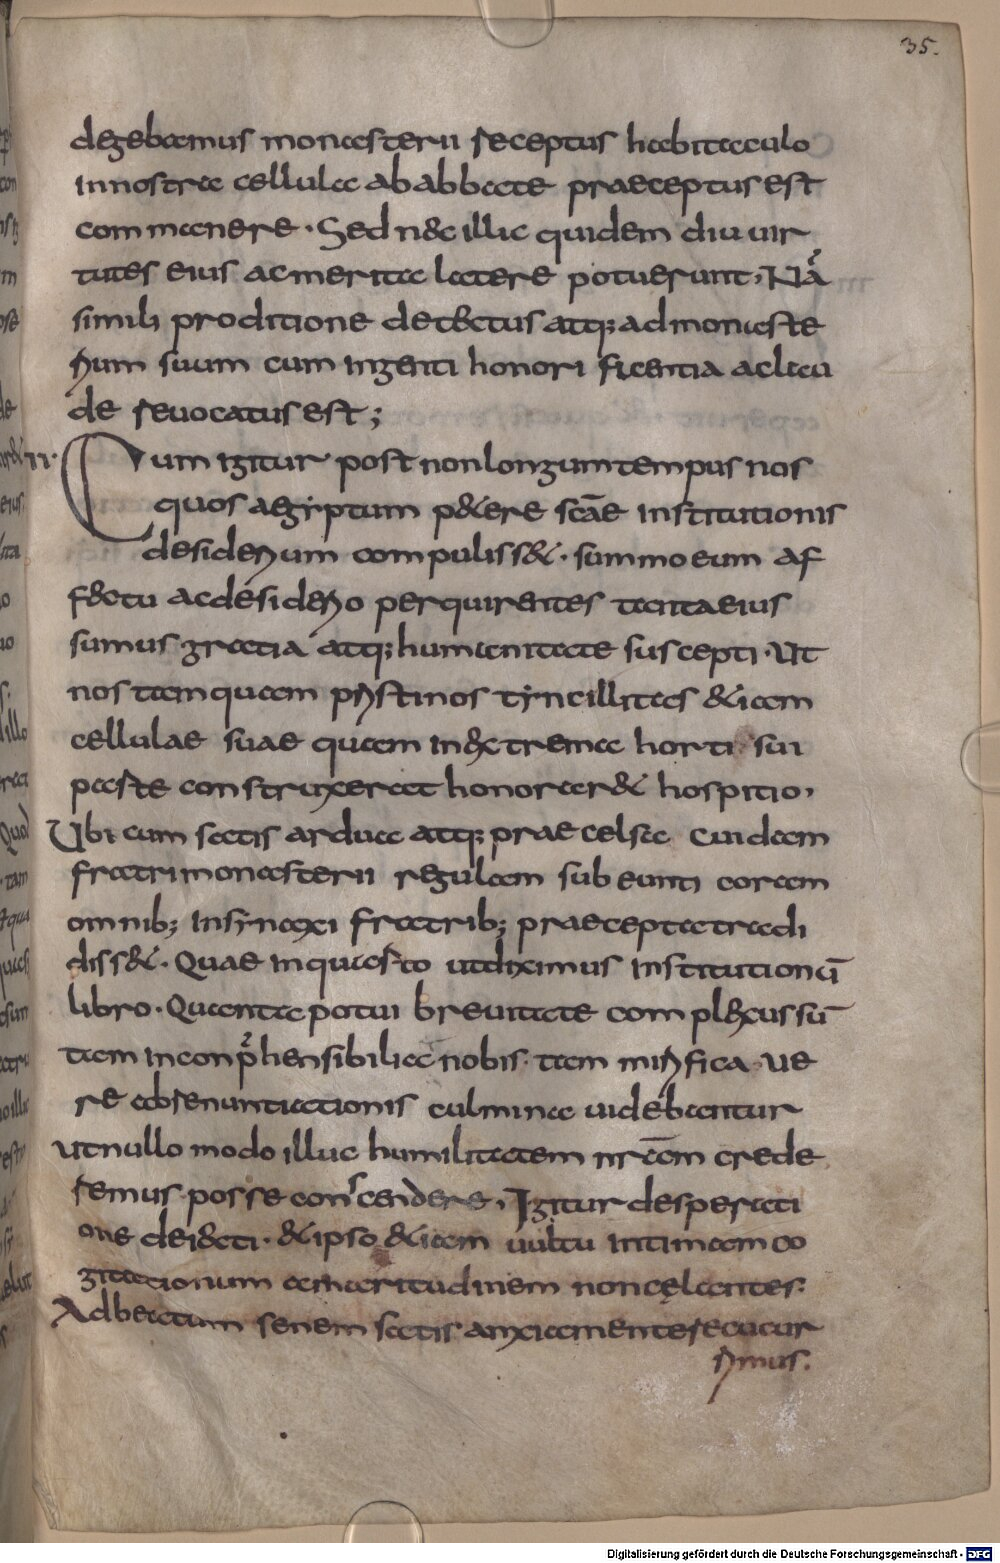 35.
degebamus monasterii receptus habitaculo
in nostra cellula ab abbate praeceptus est
commanere. Sed n&c illic quidem diu uir
tutes eius ac merita latere potuerunt, Nā
simili proditione det&ctus atq; ad monaste
rium suum cum ingenti honorificentia ac lau
de reuocatus est;
II. Cum igitur post non longum tempus nos
quos aegyptum p&ere scāe institutionis
desiderium compuliss&. summo eum af
f&ctu ac desiderio perquirentes tanta eius
sumus gratia atq; humanitate suscepti. Ut
nos tamquam pristinos syncellitas &iam
cellulae suae quam in &xtrema horti sui
parte construxerat honorar& hospitio,
Ubi cum satis ardua atq; praecelsa cuidam
fratri monasterii regulam subeunti coram
omnib; in synaxi fratrib; praecepta tradi
diss&. Quae in quarto ut diximus institutionū
libro. Quanta potui breuitate complexus sū
tam inconprehensibilia nobis. tam mirifica ue
re abrenuntiationis culmina uidebantur
ut nullo modo illuc humilitatem nrām crede
remus posse conscendere, Igitur desperati
one deiecti. & ipso &iam uultu intimam co
gitationum amaritudinem non cęlantes.
Ad beatum senem satis anxia mente recucur
rimus.
Digitalisierung gefördert durch die Deutsche Forschungsgemeinschaft - DFG